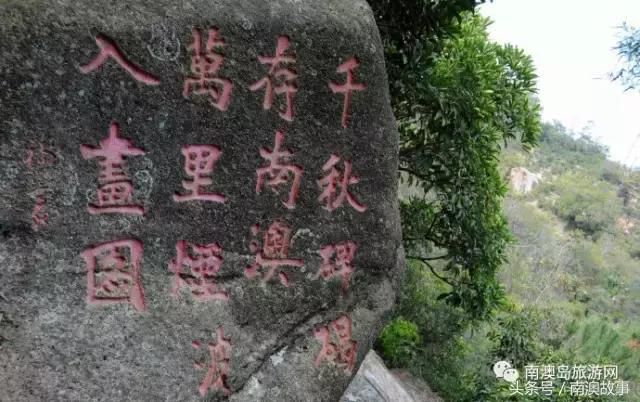 千秋碑碣
存南澳
萬里煙波
入畫圖
南澳岛旅游网
头条号 / 南澳故事